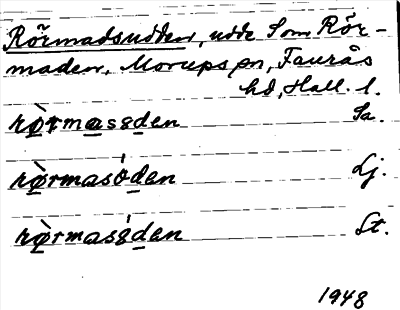 Rörmadsudden, udde Som Rör-
maden. Morups sn, Faurås
hd, Hall. l.
rø̀rmasɞden Sa.
rø̀rmasóden Lj.
rø̀rmasɞ́den St.
1948